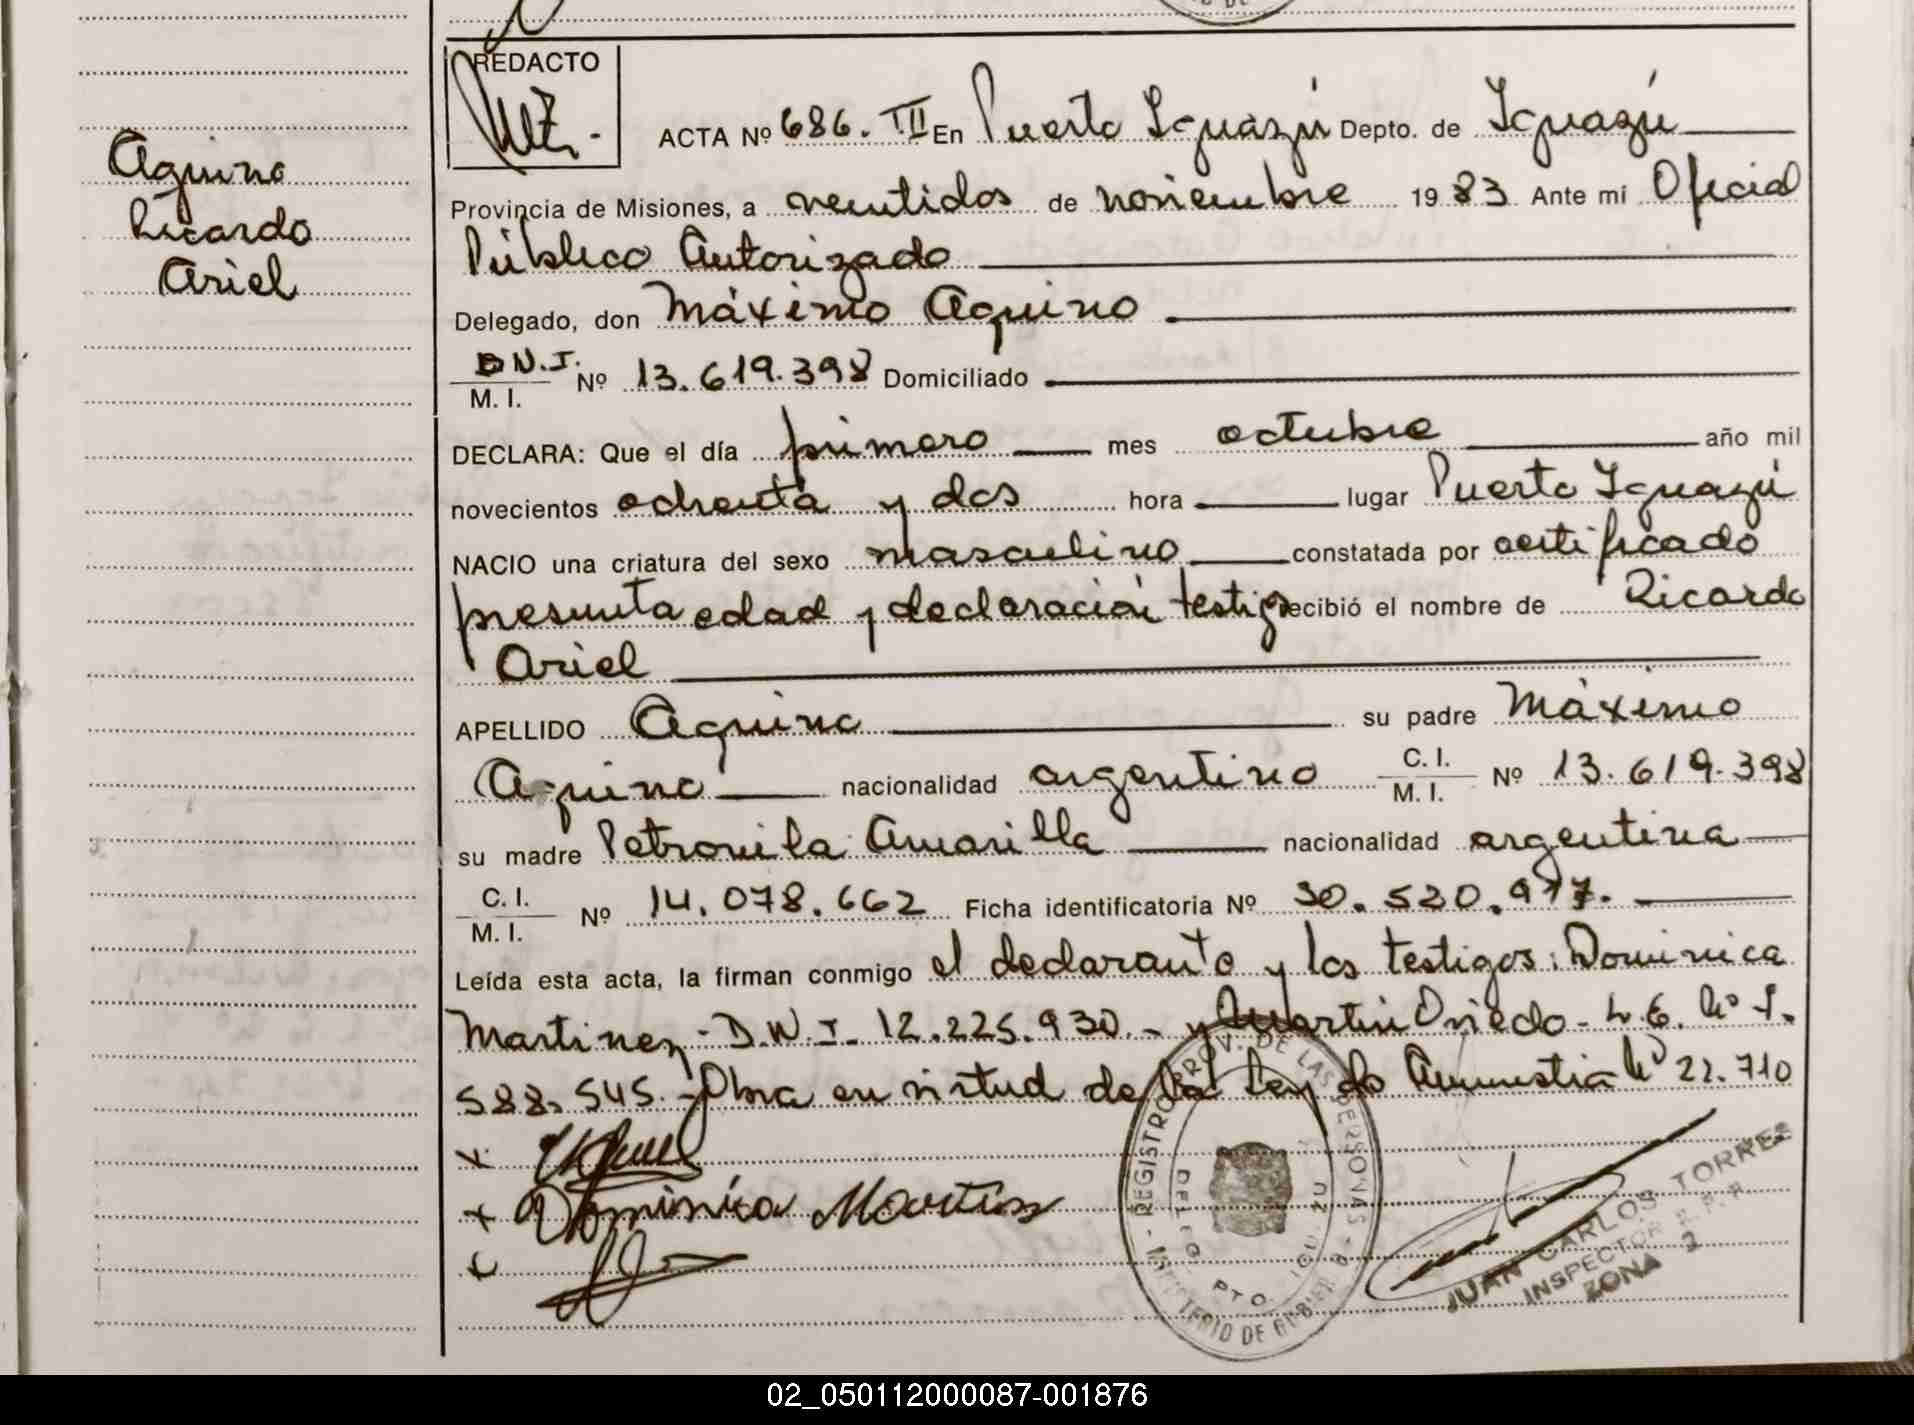 REDACTO
ACTA Nº 686. T II En Puerto Iguazú Depto. de Iguazú
Aquino
Ricardo
Ariel
Provincia de Misiones, a veintidos de noviembre 1983 Ante mí Oficial
Público Autorizado
Delegado, don Máximo Aquino
D N.I.
M. I. Nº 13.619.398 Domiciliado
DECLARA: Que el día primero mes octubre año mil
novecientos ochenta y dos hora lugar Puerto Iguazú
NACIO una criatura del sexo masculino constatada por certificado
presunta edad y declaración testig recibió el nombre de Ricardo
Ariel
APELLIDO Aquino su padre Máximo
Aquino nacionalidad argentino C. I. M. I. Nº 13.619.398
su madre Petronila Amarilla nacionalidad argentina
C. I. M. I. Nº 14.078.662 Ficha identificatoria Nº 30.520.977.
Leída esta acta, la firman conmigo el declarante y los testigos: Dominica
Martinez - D.N.I. 12.225.930. - y Martin Oviedo - L.E. Nº 7.
588.545. - Obra en virtud de la Ley de Amnistia Nº 22.710
x
x Dominica Martinez
x
REGISTRO PROV. DE LAS PERSONAS
DELEG. PTO. IGUAZU
MINISTERIO DE GOBIERNO
JUAN CARLOS TORRES
INSPECTOR R. P. P.
ZONA 3
02_050112000087-001876